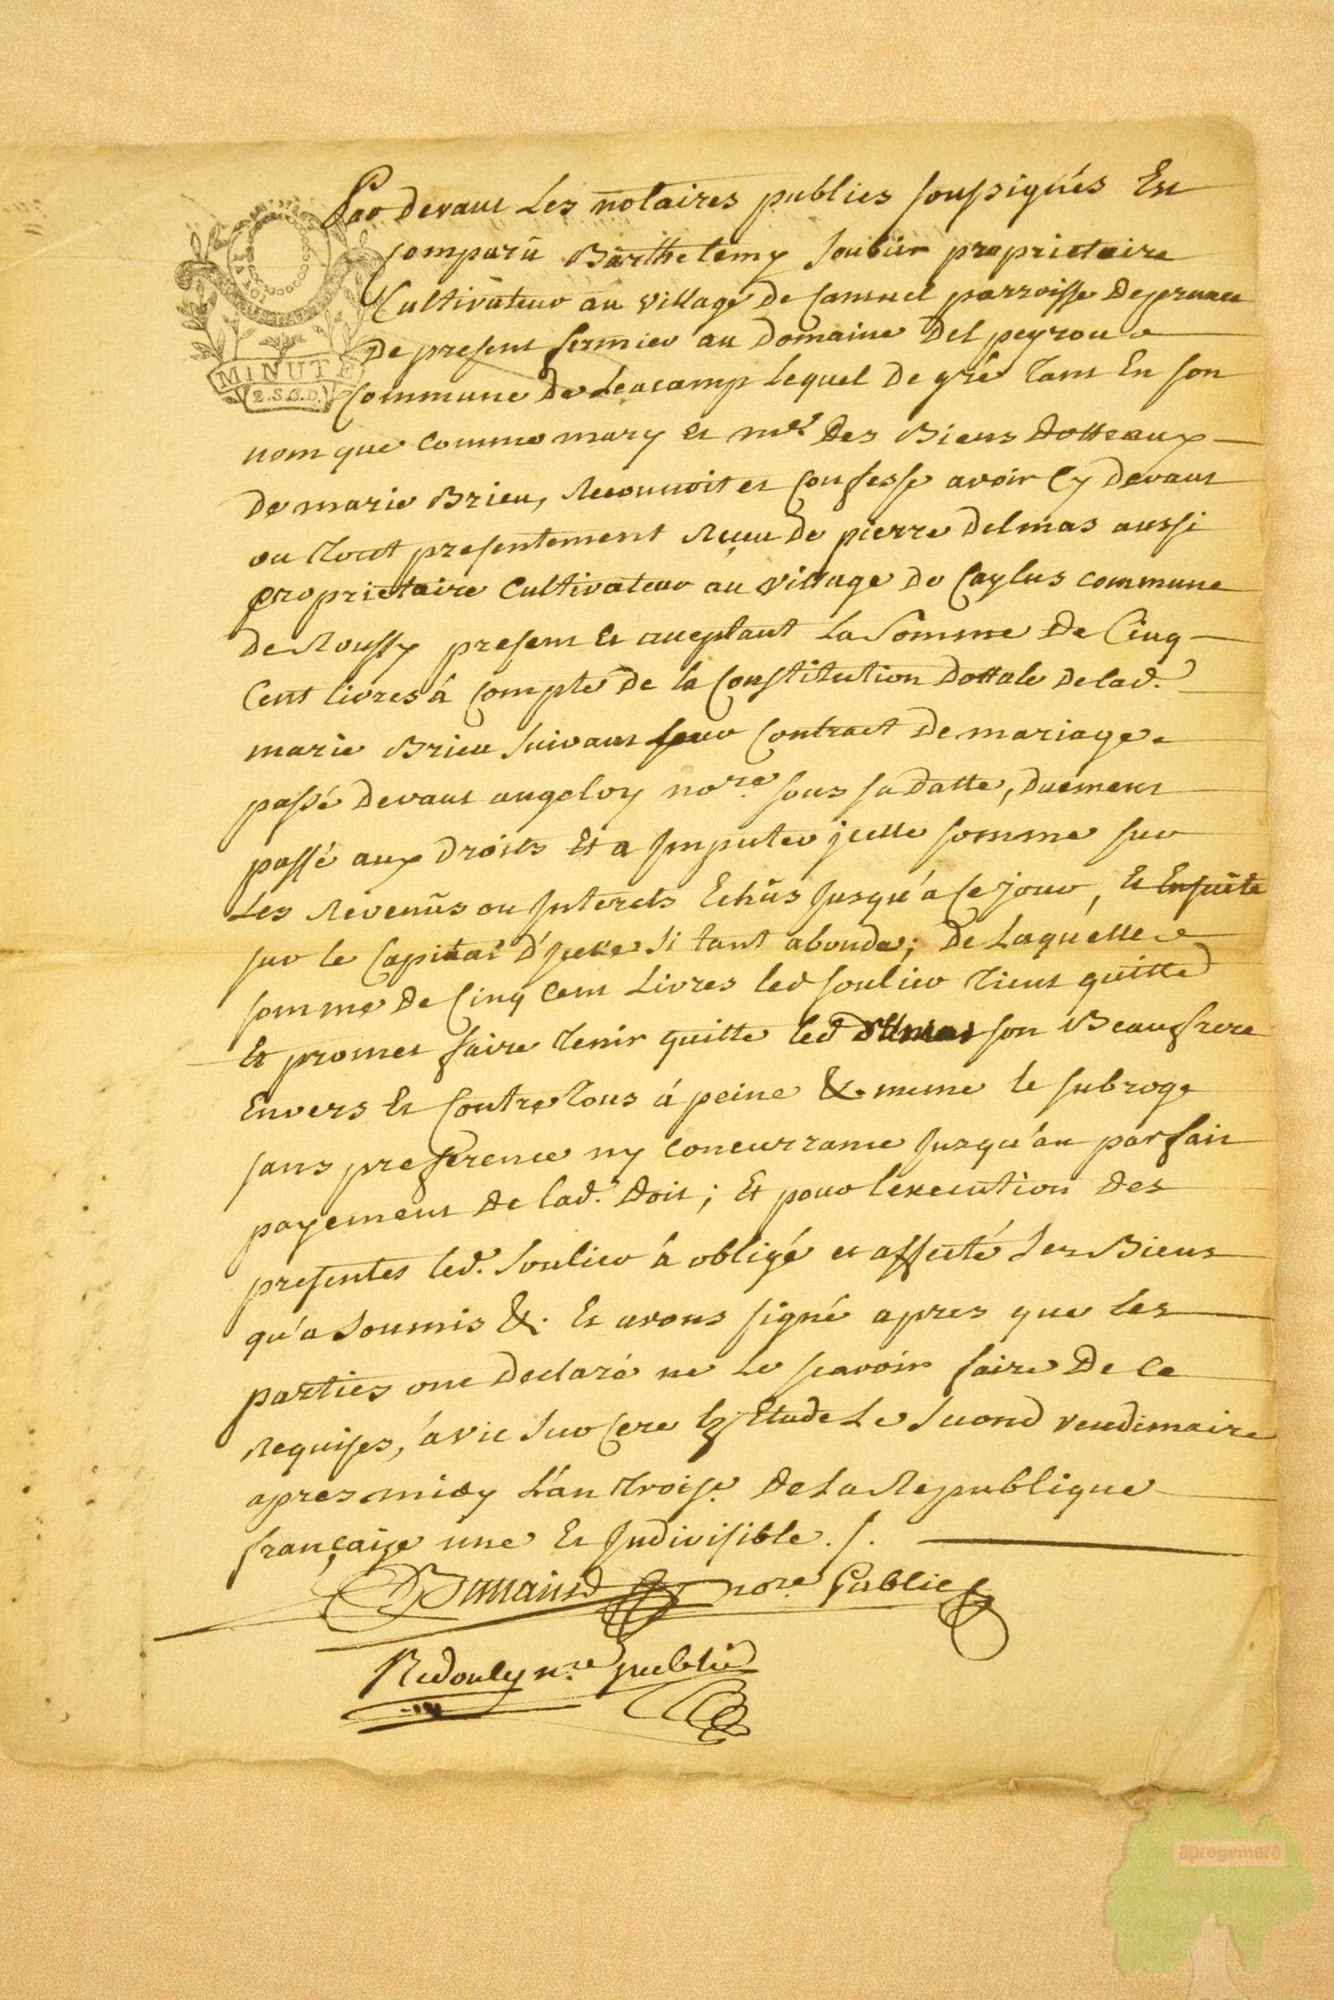 Par devant Les notaires publics soussignés Est
comparû Barthelemy Soulier proprietaire
Cultivateur au village de Camuel parroisse De prunet
De present fermier au Domaine Del peyrou
Commune De Leucamp Lequel De gré Tant En son
nom que comme mary et me. Des Biens Dotteaux
De marie Brieu, Reconnoit et Confesse avoir Cy Devant
ou Tout presentement Reçeu De pierre Delmas aussi
proprietaire Cultivateur au village De Caylus commune
de Roussy present Et acceptant La Somme De Cinq
Cent livres à Compte De la Constitution Dottale De lad.
marie Brieu Suivant leur Contract De mariage
passé Devant angelvy nore. sous sa Datte, Duement
passé aux Droits Et a Imputer jcelle somme sur
Les Revenûs ou Interets Echûs Jusqu'à ce jour, Et Ensuite
sur le Capital d'jcelle Si tant abonde; De Laquelle
somme De Cinq Cent Livres led Soulier Tient quitte
Et promet faire Tenir quitte led Delmas son Beaufrere
Envers Et Contre Tous à peine &. meme le subroge
sans preference ny Concurrance Jusqu'au parfait
payement De lad. Doit; Et pour l'execution Des
presentes led. Soulier à obligé et affecté Ses Biens
qu'a Soumis &. Et avons signé apres que Les
parties ont Declaré ne Le scavoir faire De ce
Requises, à vic Sur Cere Ez Etude Le Second vendimaire
apres midy L'an Troise. De La Republique
française une Et Indivisible. /.
nore. Public
Redouly nre public
MINUTE
2.S.6.D.
aprogemere